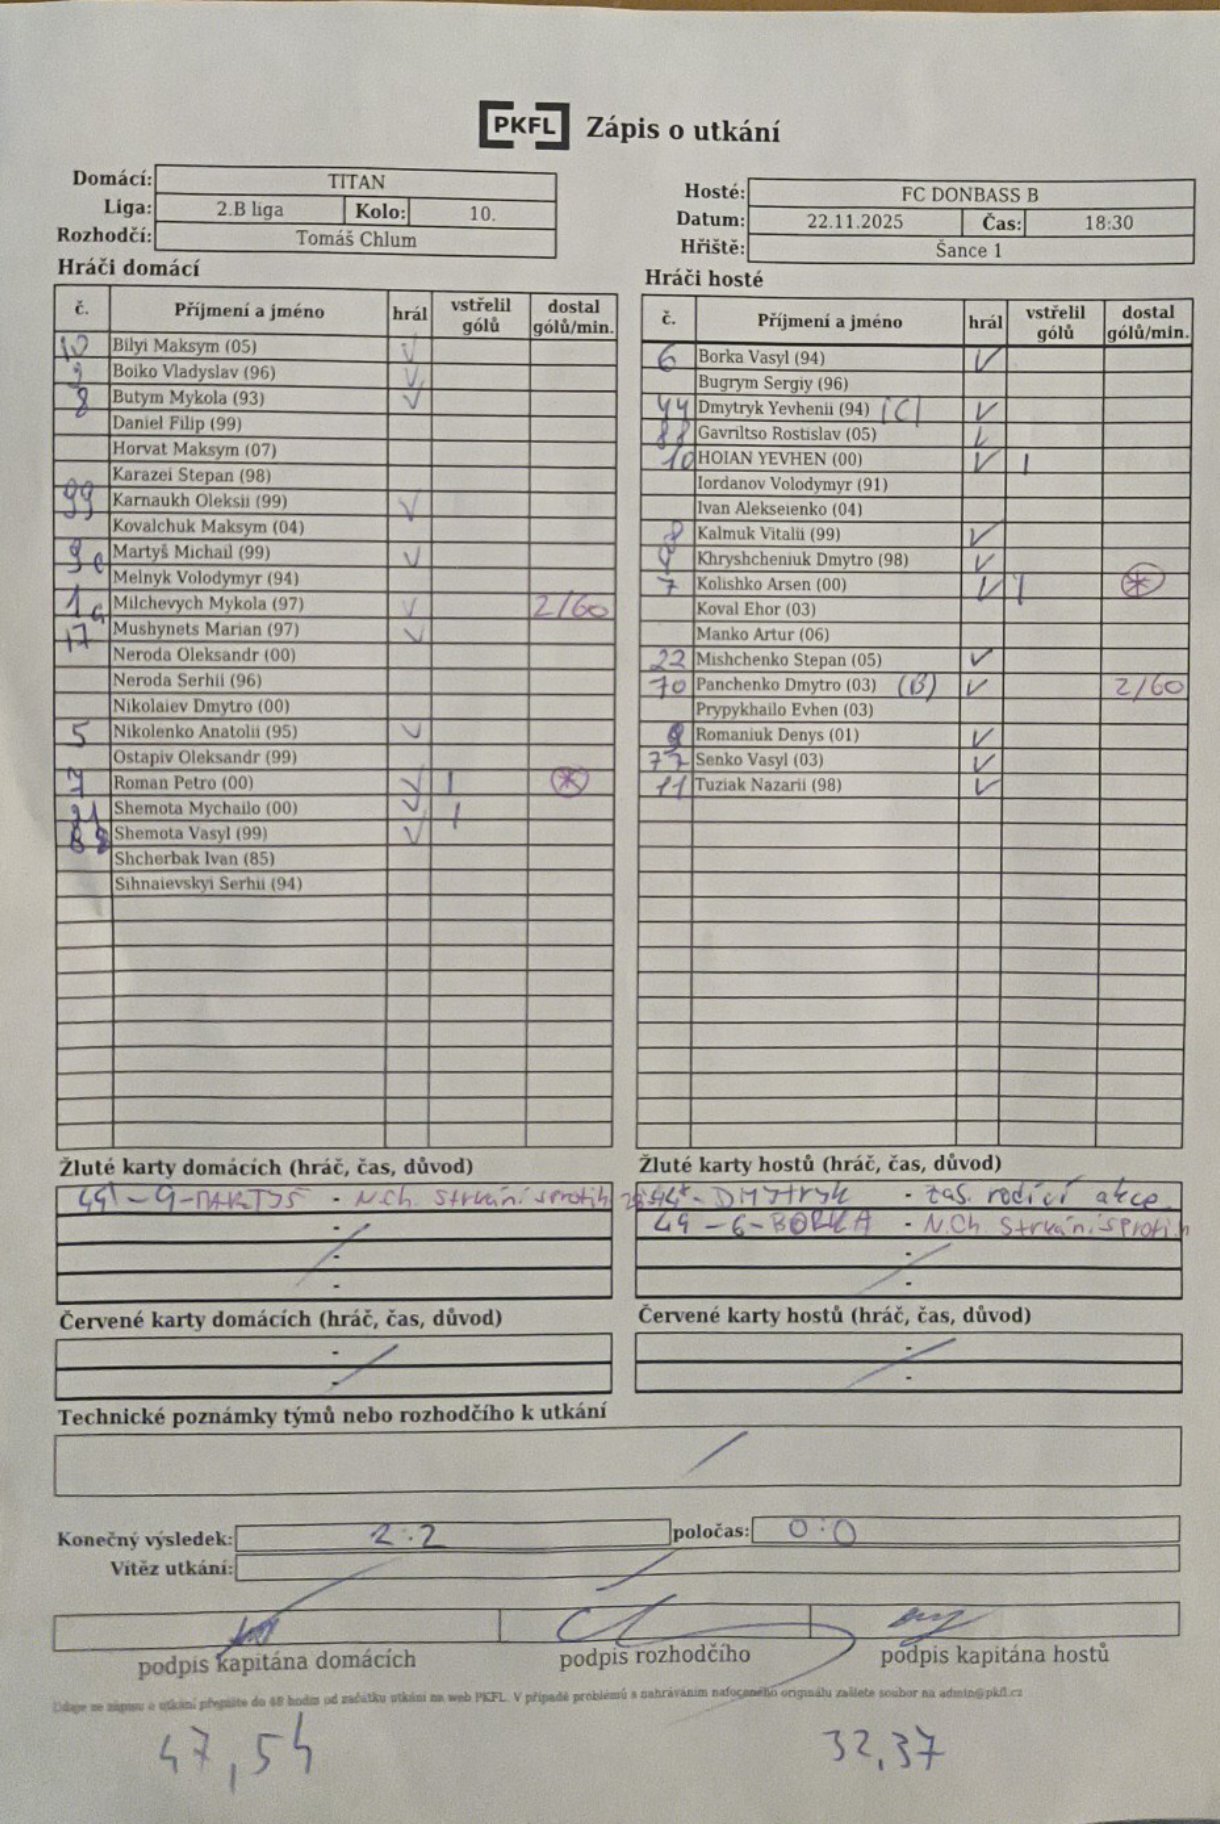 PKFL Zápis o utkání
Domácí: TITAN
Liga: 2.B liga Kolo: 10.
Rozhodčí: Tomáš Chlum
Hosté: FC DONBASS B
Datum: 22.11.2025 Čas: 18:30
Hřiště: Šance 1
Hráči domácí
č. Příjmení a jméno hrál vstřelil gólů dostal gólů/min.
10 Bilyi Maksym (05) V
Boiko Vladyslav (96) V
8 Butym Mykola (93) V
Daniel Filip (99)
Horvat Maksym (07)
Karazei Stepan (98)
99 Karnaukh Oleksii (99) V
Kovalchuk Maksym (04)
9 Martyš Michail (99) V
Melnyk Volodymyr (94)
1 Milchevych Mykola (97) V 2/60
17 Mushynets Marian (97) V
Neroda Oleksandr (00)
Neroda Serhii (96)
Nikolaiev Dmytro (00)
5 Nikolenko Anatolii (95) V
Ostapiv Oleksandr (99)
7 Roman Petro (00) V 1 *
21 Shemota Mychailo (00) V 1
88 Shemota Vasyl (99) V
Shcherbak Ivan (85)
Sihnaievskyi Serhii (94)
Hráči hosté
č. Příjmení a jméno hrál vstřelil gólů dostal gólů/min.
6 Borka Vasyl (94) V
Bugrym Sergiy (96)
44 Dmytryk Yevhenii (94) (C) V
88 Gavriltso Rostislav (05) V
10 HOIAN YEVHEN (00) V 1
Iordanov Volodymyr (91)
Ivan Alekseienko (04)
Kalmuk Vitalii (99) V
Khryshcheniuk Dmytro (98) V
7 Kolishko Arsen (00) V 1 *
Koval Ehor (03)
Manko Artur (06)
22 Mishchenko Stepan (05) V
70 Panchenko Dmytro (03) (B) V 2/60
Prypykhailo Evhen (03)
Romaniuk Denys (01) V
77 Senko Vasyl (03) V
11 Tuziak Nazarii (98) V
Žluté karty domácích (hráč, čas, důvod)
49' - 9 - MARTYŠ - N.ch. strkání s protih
-
-
-
Žluté karty hostů (hráč, čas, důvod)
44 - DMYTRYK - zas. rodící akce
49 - 6 - BORKA - N.Ch strkání s protih
-
-
Červené karty domácích (hráč, čas, důvod)
-
-
Červené karty hostů (hráč, čas, důvod)
-
-
Technické poznámky týmů nebo rozhodčího k utkání
Konečný výsledek: 2:2 poločas: 0:0
Vítěz utkání:
podpis kapitána domácích podpis rozhodčího podpis kapitána hostů
Údaje ze zápisu o utkání přepište do 48 hodin od začátku utkání na web PKFL. V případě problémů s nahráváním nafoceného originálu zašlete soubor na admin@pkfl.cz
47,54 32,37